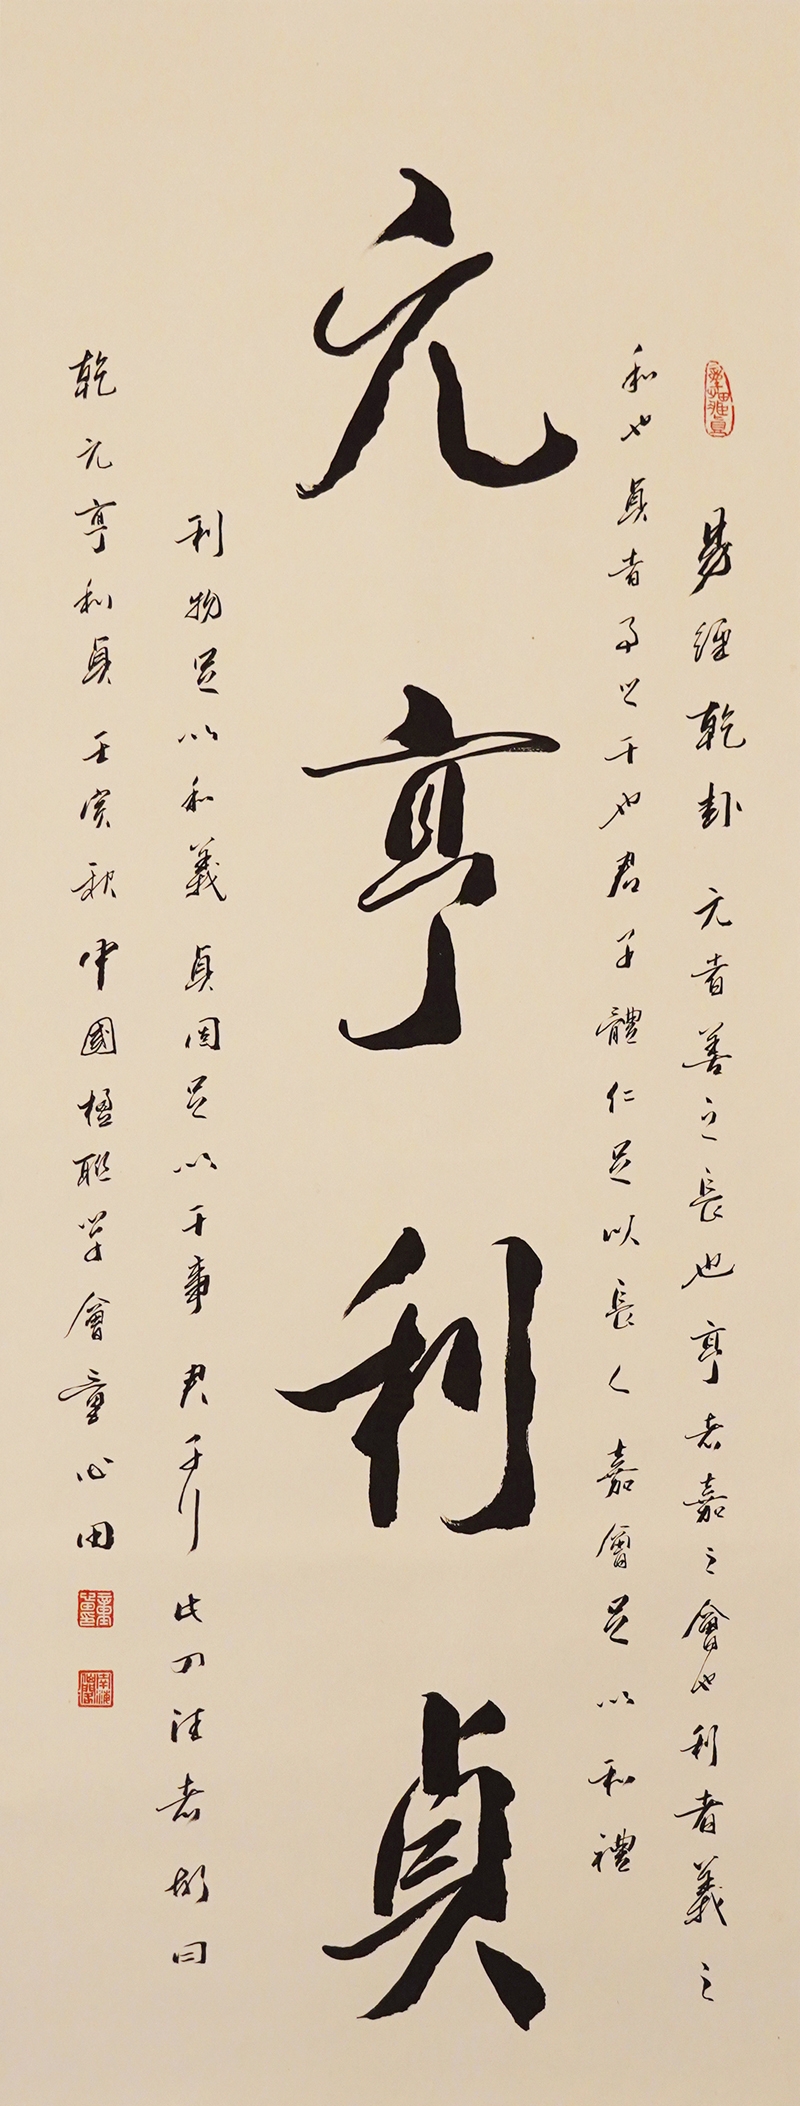 易經乾卦 元者善之長也亨者嘉之會也利者義之
和也貞者事之干也君子體仁足以長人嘉會足以和禮
元亨利貞
利物足以和義貞固足以干事君子行此四德者故曰
乾元亨利貞 壬寅秋中國楹聯學會童心田